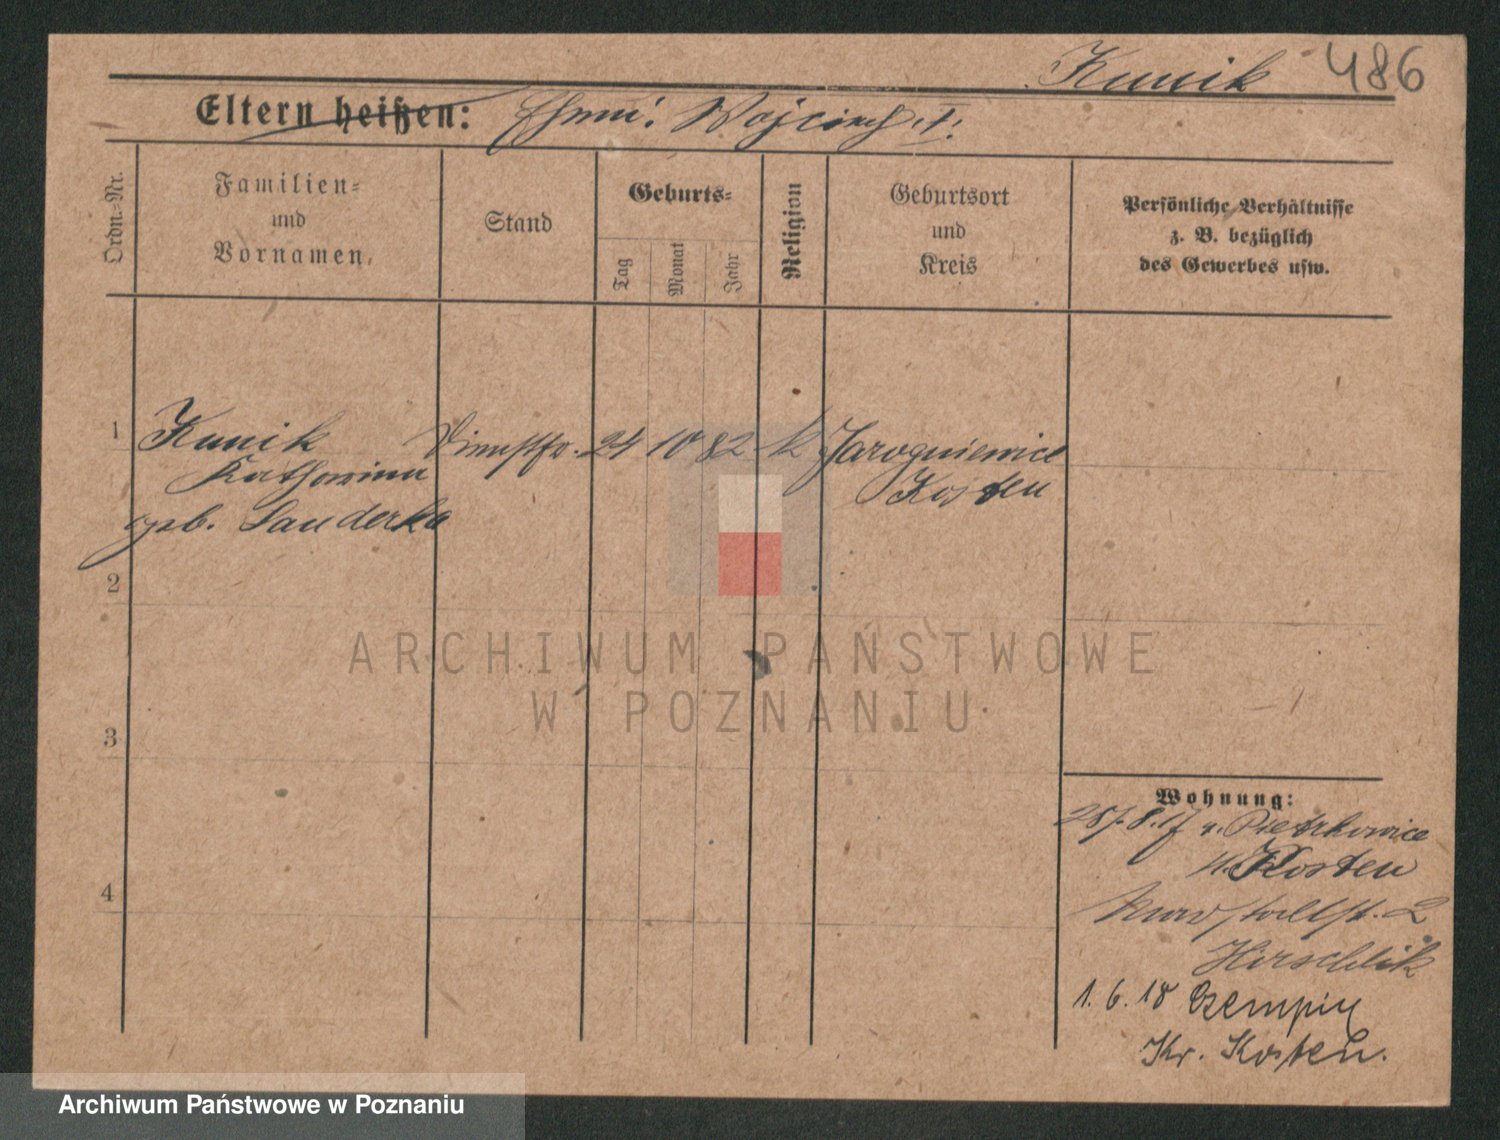 Kunik 486
Eltern heißen: Ehem: Wojciech. †.
Ordn.=Nr.
Familien=
und
Vornamen.
Stand
Geburts=
Tag
Monat
Jahr
Religion
Geburtsort
und
Kreis
Persönliche Verhältnisse
z. B. bezüglich
des Gewerbes usw.
1 Kunik Dienstfr. 24 10 82 k Jarogniewice
Katharina Kosten
geb. Sauderka
2
3
4
Wohnung:
28/.8.17 v. Pietrkowice
Kr. Kosten
2
Hirschlik
1.6.18 Czempiń
Kr. Kosten.
ARCHIWUM PAŃSTWOWE
W POZNANIU
Archiwum Państwowe w Poznaniu